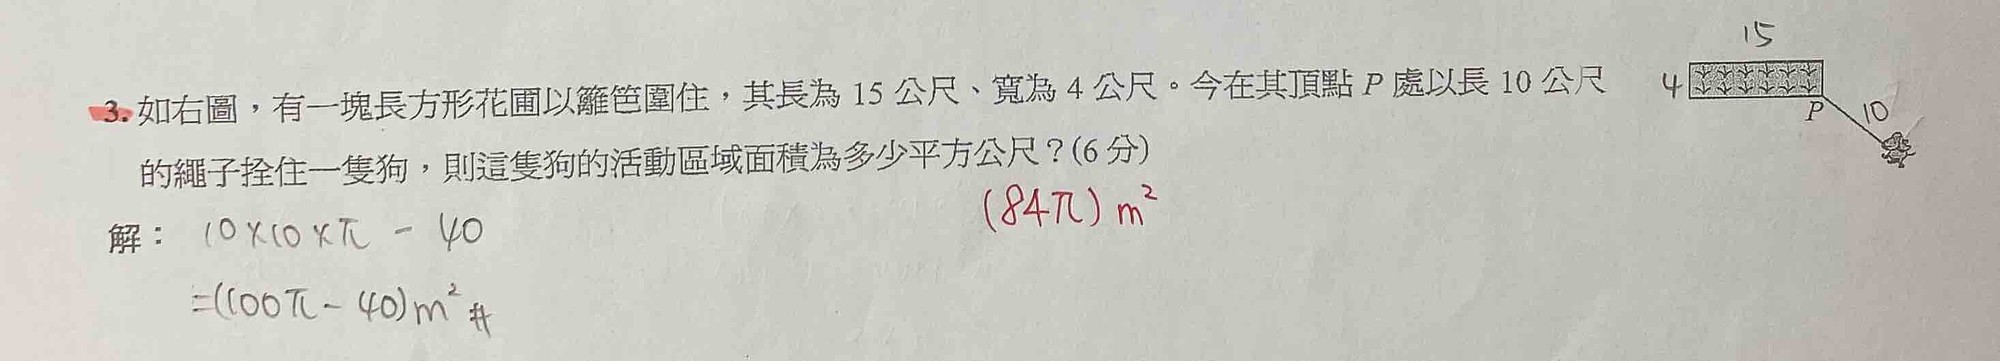 15
3. 如右圖，有一塊長方形花圃以籬笆圍住，其長為 15 公尺、寬為 4 公尺。今在其頂點 P 處以長 10 公尺
4
P
10
的繩子拴住一隻狗，則這隻狗的活動區域面積為多少平方公尺？(6 分)
(84π) m²
解： 10×10×π - 40
=(100π - 40)m² #